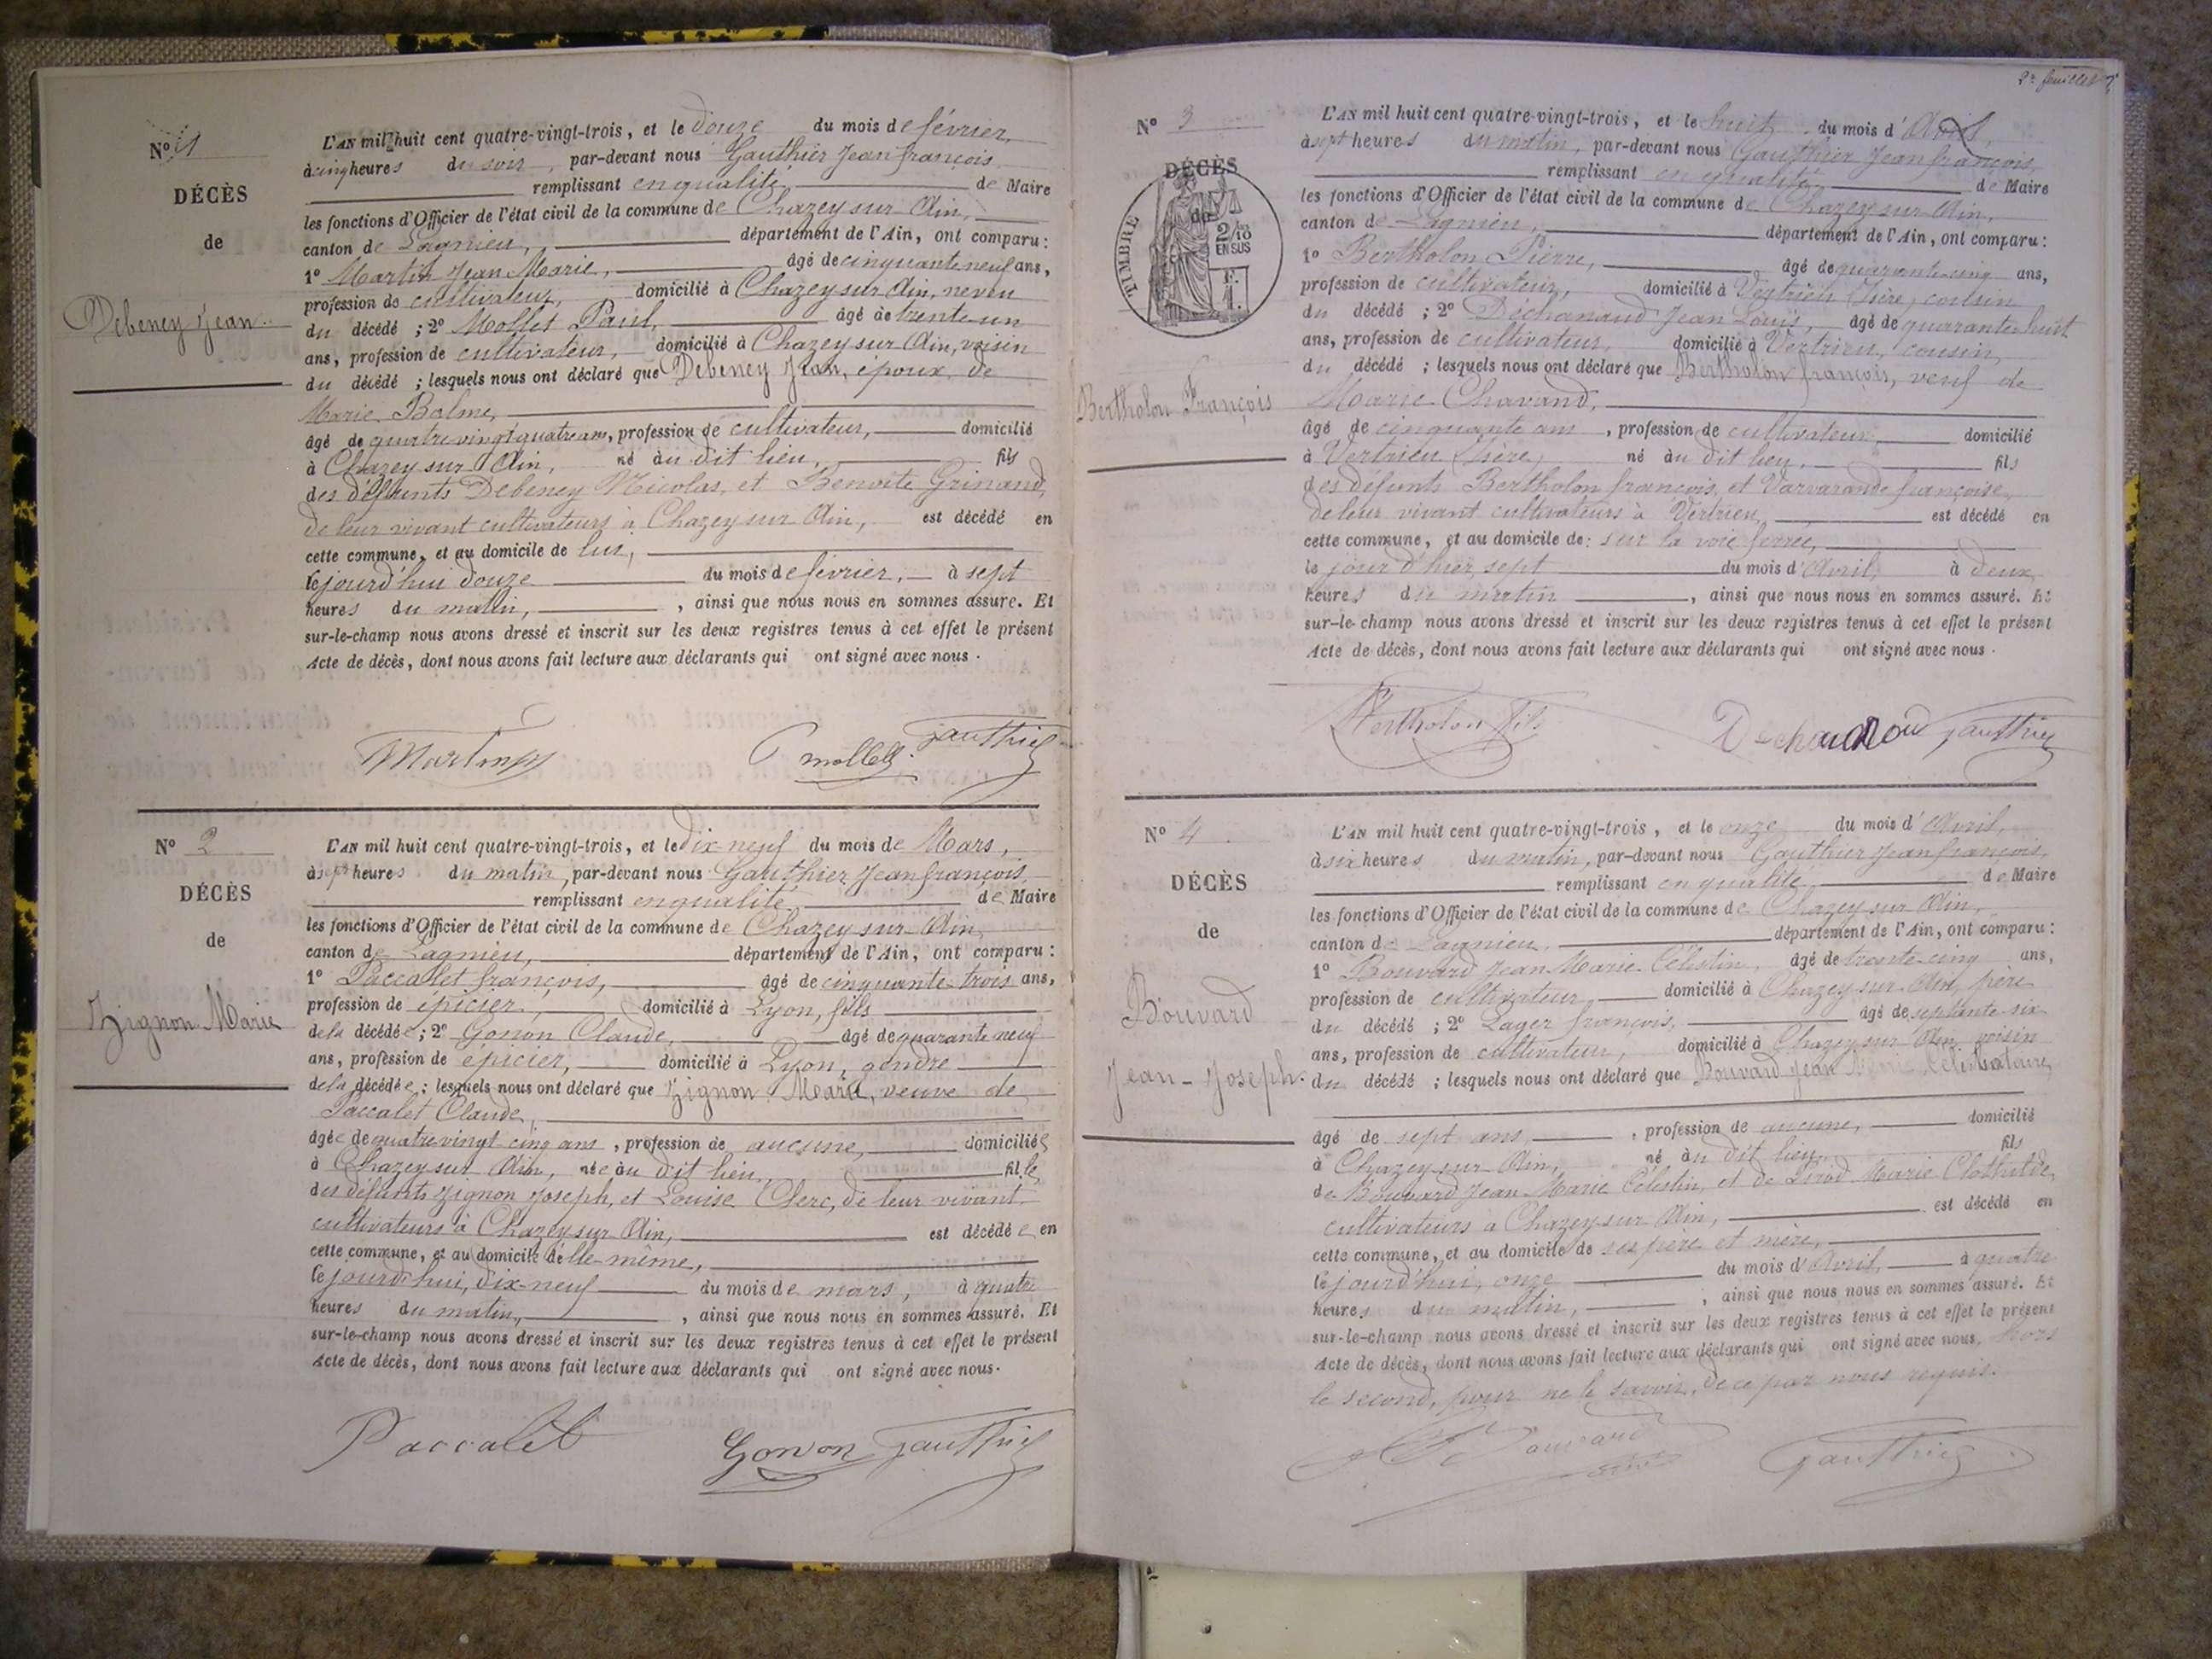 Nº 1
DÉCÈS
de
Debeney Jean
L'AN mil huit cent quatre-vingt-trois, et le douze du mois de février,
à cinq heures du soir, par-devant nous Gauthier Jean françois
remplissant en qualité de Maire
les fonctions d'Officier de l'état civil de la commune de Chazey sur Ain,
canton de Lagnieu, département de l'Ain, ont comparu :
1º Martin Jean Marie, âgé de cinquante neuf ans,
profession de cultivateur, domicilié à Chazey sur Ain, neveu
du décédé ; 2º Mollet Paul, âgé de trente un
ans, profession de cultivateur, domicilié à Chazey sur Ain, voisin
du décédé ; lesquels nous ont déclaré que Debeney Jean, époux de
Marie Balme,
âgé de quatre vingt quatre ans, profession de cultivateur, domicilié
à Chazey sur Ain, né au dit lieu, fils
des défunts Debeney Nicolas, et Benoite Grinand,
de leur vivant cultivateurs à Chazey sur Ain, est décédé en
cette commune, et au domicile de lui,
le jourd'hui douze du mois de février, à sept
heures du matin, , ainsi que nous nous en sommes assuré. Et
sur-le-champ nous avons dressé et inscrit sur les deux registres tenus à cet effet le présent
Acte de décès, dont nous avons fait lecture aux déclarants qui ont signé avec nous.
Martin P mollet Gauthier
Nº 2
DÉCÈS
de
Zignon Marie
L'AN mil huit cent quatre-vingt-trois, et le dix-neuf du mois de Mars,
à sept heures du matin, par-devant nous Gauthier Jean françois
remplissant en qualité de Maire
les fonctions d'Officier de l'état civil de la commune de Chazey sur Ain,
canton de Lagnieu, département de l'Ain, ont comparu :
1º Paccalet françois, âgé de cinquante trois ans,
profession de épicier, domicilié à Lyon, fils
de la décédée ; 2º Gonon Claude, âgé de quarante neuf
ans, profession de épicier, domicilié à Lyon, gendre
de la décédée ; lesquels nous ont déclaré que Zignon Marie, veuve de
Paccalet Claude,
âgée de quatre vingt cinq ans, profession de aucune, domiciliée
à Chazey sur Ain, née au dit lieu, fille
des défunts Zignon Joseph, et Louise Clerc, de leur vivant
cultivateurs à Chazey sur Ain, est décédée en
cette commune, et au domicile d'elle-même,
le jourd'hui, dix-neuf du mois de mars, à quatre
heures du matin, , ainsi que nous nous en sommes assuré. Et
sur-le-champ nous avons dressé et inscrit sur les deux registres tenus à cet effet le présent
Acte de décès, dont nous avons fait lecture aux déclarants qui ont signé avec nous.
Paccalet Gonon Gauthier
2e feuillet
Nº 3
DÉCÈS
de
TIMBRE
2/10
EN SUS
Bertholon François
L'AN mil huit cent quatre-vingt-trois, et le huit du mois d'Avril,
à sept heures du matin, par-devant nous Gauthier Jean françois,
remplissant en qualité de Maire
les fonctions d'Officier de l'état civil de la commune de Chazey sur Ain,
canton de Lagnieu, département de l'Ain, ont comparu :
1º Bertholon Pierre, âgé de quarante cinq ans,
profession de cultivateur, domicilié à Vertrieu Isère, cousin
du décédé ; 2º Déchanaud Jean Louis, âgé de quarante huit
ans, profession de cultivateur, domicilié à Vertrieu, cousin,
du décédé ; lesquels nous ont déclaré que Bertholon françois, veuf de
Marie Chavand,
âgé de cinquante ans, profession de cultivateur, domicilié
à Vertrieu Isère, né au dit lieu, fils
des défunts Bertholon françois, et Varvarande françoise,
de leur vivant cultivateurs à Vertrieu, est décédé en
cette commune, et au domicile de : sur la voie ferrée,
le jour d'hier, sept du mois d'Avril, à deux
heures du matin , ainsi que nous nous en sommes assuré. Et
sur-le-champ nous avons dressé et inscrit sur les deux registres tenus à cet effet le présent
Acte de décès, dont nous avons fait lecture aux déclarants qui ont signé avec nous.
Bertholon fils Gauthier
Nº 4
DÉCÈS
de
Bouvard
Jean-Joseph.
L'AN mil huit cent quatre-vingt-trois, et le onze du mois d'Avril,
à six heures du matin, par-devant nous Gauthier Jean françois,
remplissant en qualité de Maire
les fonctions d'Officier de l'état civil de la commune de Chazey sur Ain,
canton de Lagnieu, département de l'Ain, ont comparu :
1º Bouvard Jean Marie Célestin, âgé de trente cinq ans,
profession de cultivateur, domicilié à Chazey sur Ain, père
du décédé ; 2º Layer françois, âgé de septante six
ans, profession de cultivateur, domicilié à Chazey sur Ain, voisin
du décédé ; lesquels nous ont déclaré que Bouvard Jean
âgé de sept ans, , profession de aucune, domicilié
à Chazey sur Ain, né au dit lieu, fils
de Bouvard Jean Marie Célestin, et de Marie Clothilde,
cultivateurs à Chazey sur Ain, est décédé en
cette commune, et au domicile de ses père et mère,
le jourd'hui, onze du mois d'Avril, à quatre
heures du matin, , ainsi que nous nous en sommes assuré. Et
sur-le-champ nous avons dressé et inscrit sur les deux registres tenus à cet effet le présent
Acte de décès, dont nous avons fait lecture aux déclarants qui ont signé avec nous, hors
le second, pour ne le savoir, de ce par nous requis.
Bouvard Gauthier